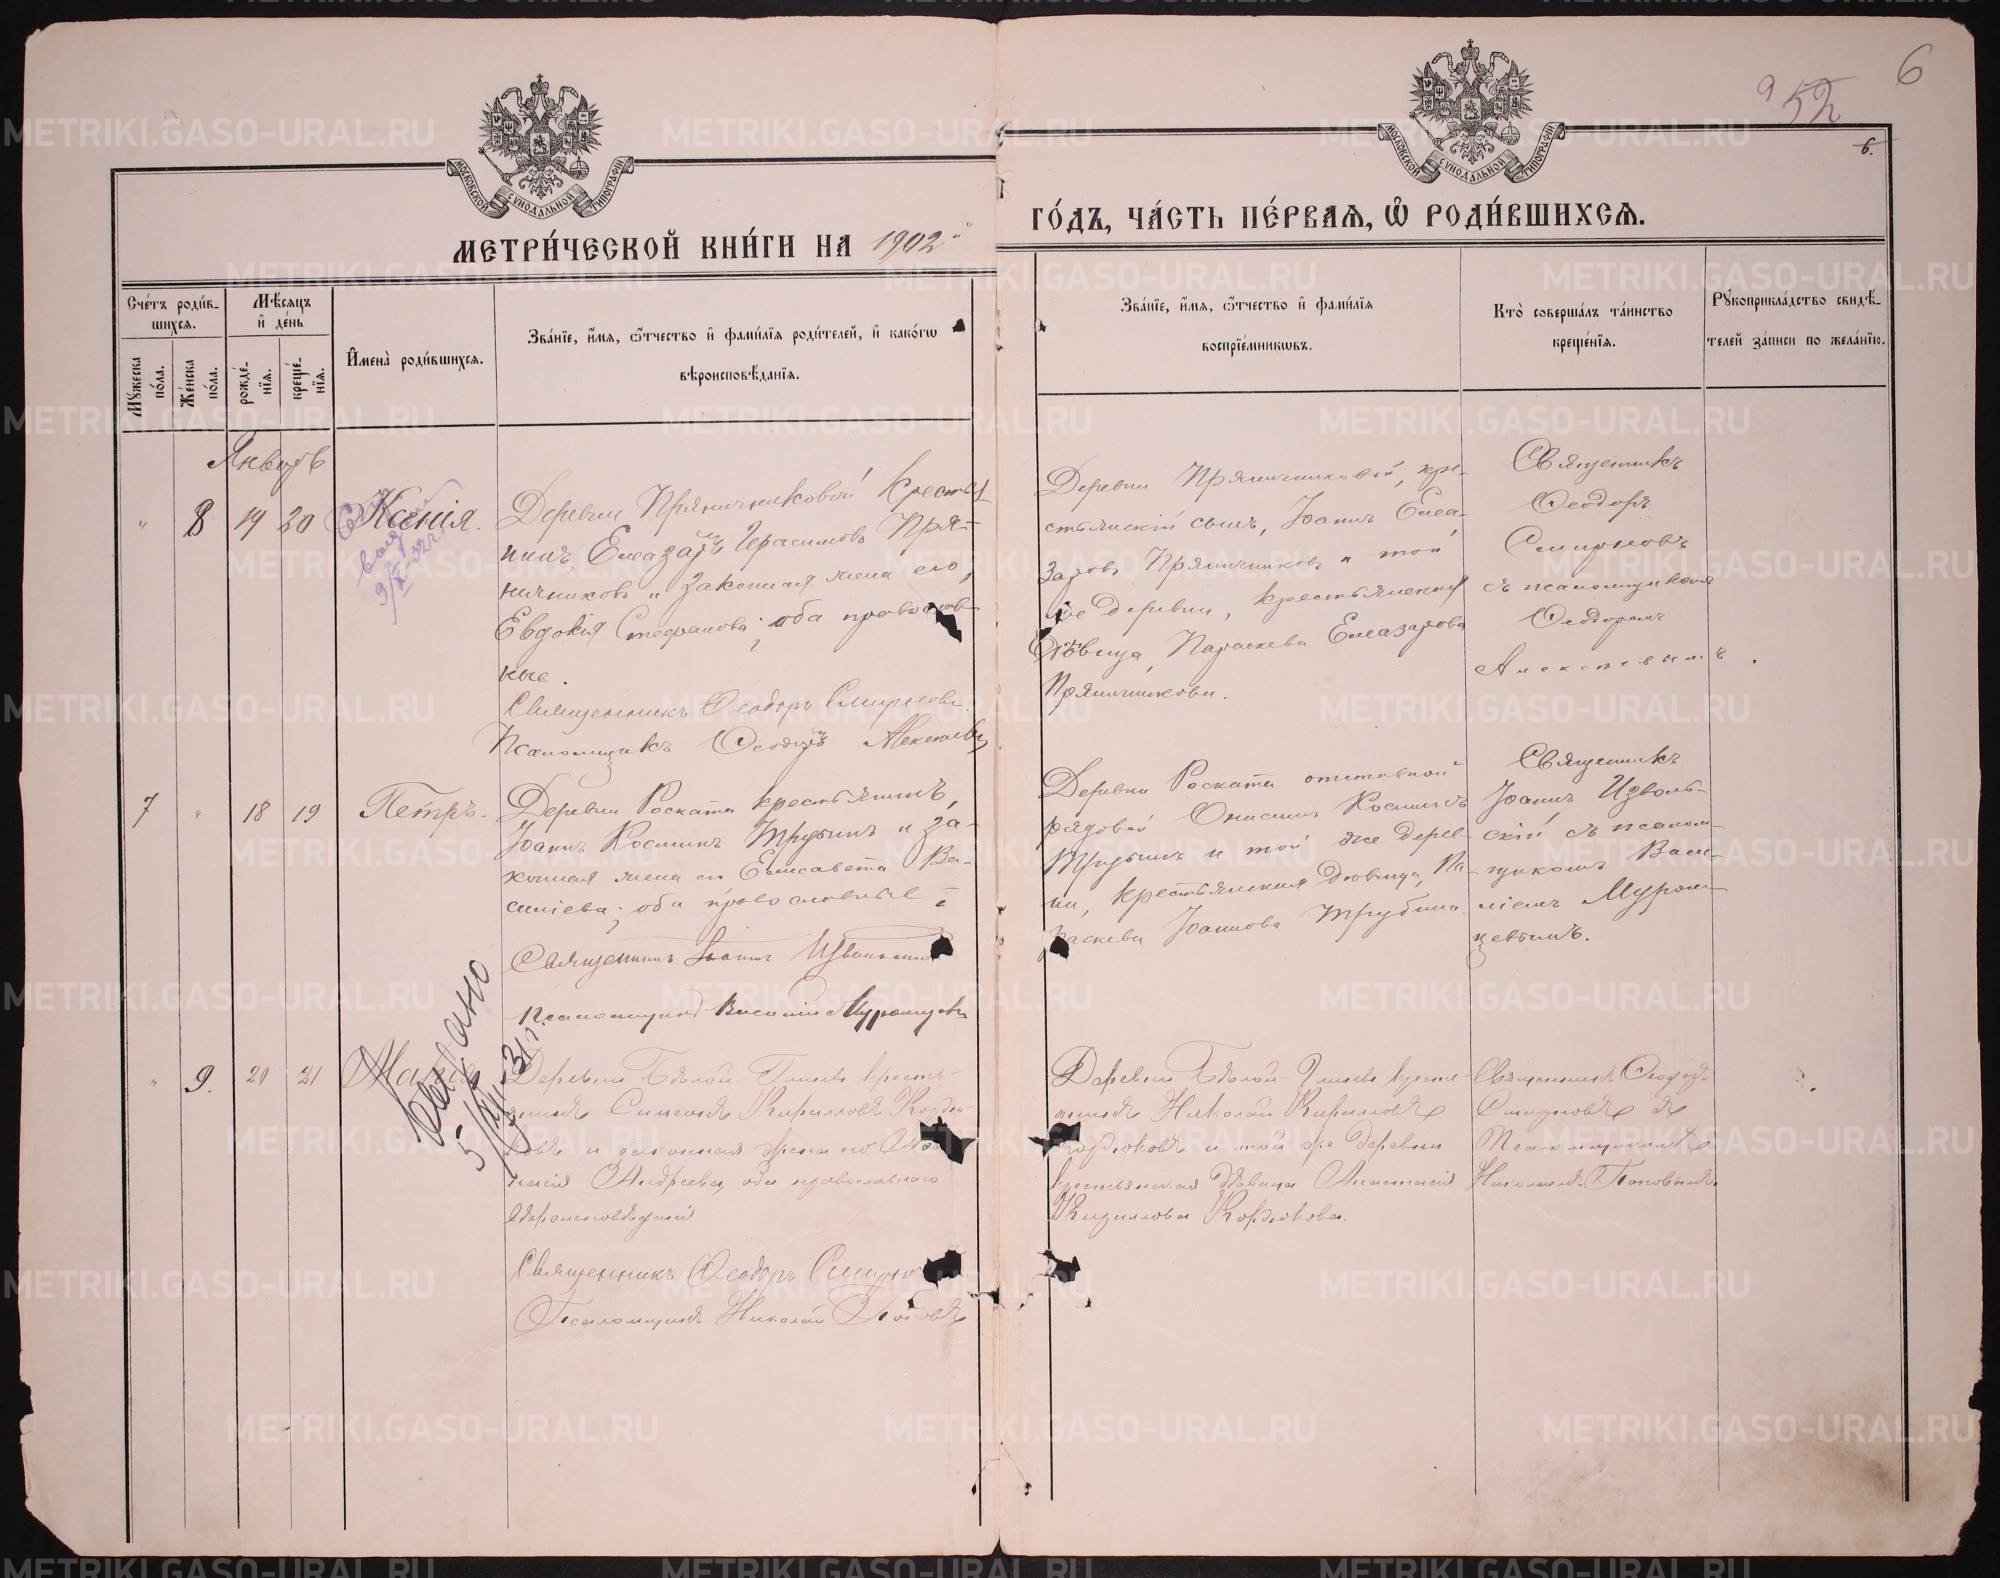 6
9 52
6.
МОСКОВСКОЙ СѴНОДАЛЬНОЙ ТИПОГРАФІИ
МОСКОВСКОЙ СѴНОДАЛЬНОЙ ТИПОГРАФІИ
МЕТРИ́ЧЕСКОЙ КНИ́ГИ НА 1902 й
ГО́ДЪ, ЧА́СТЬ ПЕ́РВАѦ, Ѽ РОДИ́ВШИХСѦ.
Сче́тъ роди́в-
шихсѧ.
Мꙋ́жеска по́ла.
Же́нска по́ла.
Мѣ́сѧцъ и҆ де́нь
рожде́-нїѧ.
креще́-нїѧ.
И҆мена̀ роди́вшихсѧ.
Зва́нїе, и҆́мѧ, ѻ҆́тчество и҆ фами́лїѧ роди́телей, и҆ како́гѡ
вѣроисповѣ́данїѧ.
Зва́нїе, и҆́мѧ, ѻ҆́тчество и҆ фами́лїѧ
воспрїе́мникѡвъ.
Кто̀ соверша́лъ та́инство
креще́нїѧ.
Рꙋкоприкла́дство свидѣ́-
телей за́писи по жела́нїю.
Январь
" 8 19 20 Ксенія.
Деревни Пряничниковой Кресть
янинъ, Елеазаръ Герасимовъ Пря-
ничниковъ и законная жена его,
Евдокія Стефанова; оба православ
ные.
Священникъ Ѳеодоръ Смирновъ.
Псаломщикъ Ѳеодоръ Алексѣевъ
Деревни Пряничниковой, кре-
стьянскій сынъ, Іоаннъ Елеа-
заровъ Пряничниковъ и той
же деревни, крестьянская
дѣвица, Параскева Елеазарова
Пряничникова.
Священникъ
Ѳеодоръ
Смирновъ
съ псаломщикомъ
Ѳеодоромъ
Алексѣевымъ.
7 " 18 19 Петръ.
Деревни Роската крестьянинъ,
Іоаннъ Косминъ Трубинъ и за-
конная жена его Елисавета Ва-
силіева; оба православные.
Священникъ Іоаннъ Извольскій
Псаломщикъ Василій Муромцевъ
Деревни Роската отставной
рядовой Онисимъ Косминъ
Трубинъ и той же дерев-
ни, крестьянская дѣвица, Па-
раскева Іоаннова Трубина.
Священникъ
Іоаннъ Изволь-
скій съ псалом-
щикомъ Васи-
ліемъ Муром-
цевымъ.
Выдано
5/XII-31 г.
" 9. 20 21
Деревни Бѣлой Глины кресть-
янинъ Симеонъ Кирилловъ Кордю-
ковъ и законная жена его
Андреева, оба православнаго
вѣроисповѣданія
Священникъ Ѳеодоръ Смирновъ
Псаломщикъ Николай Поповъ
Деревни Бѣлой Глины кресть-
янинъ Николай Кирилловъ
Кордюковъ и той же деревни
крестьянская дѣвица Анастасія
Кириллова Кордюкова.
Священникъ Ѳеодоръ
Смирновъ съ
Псаломщикомъ
Николаемъ Поповымъ.